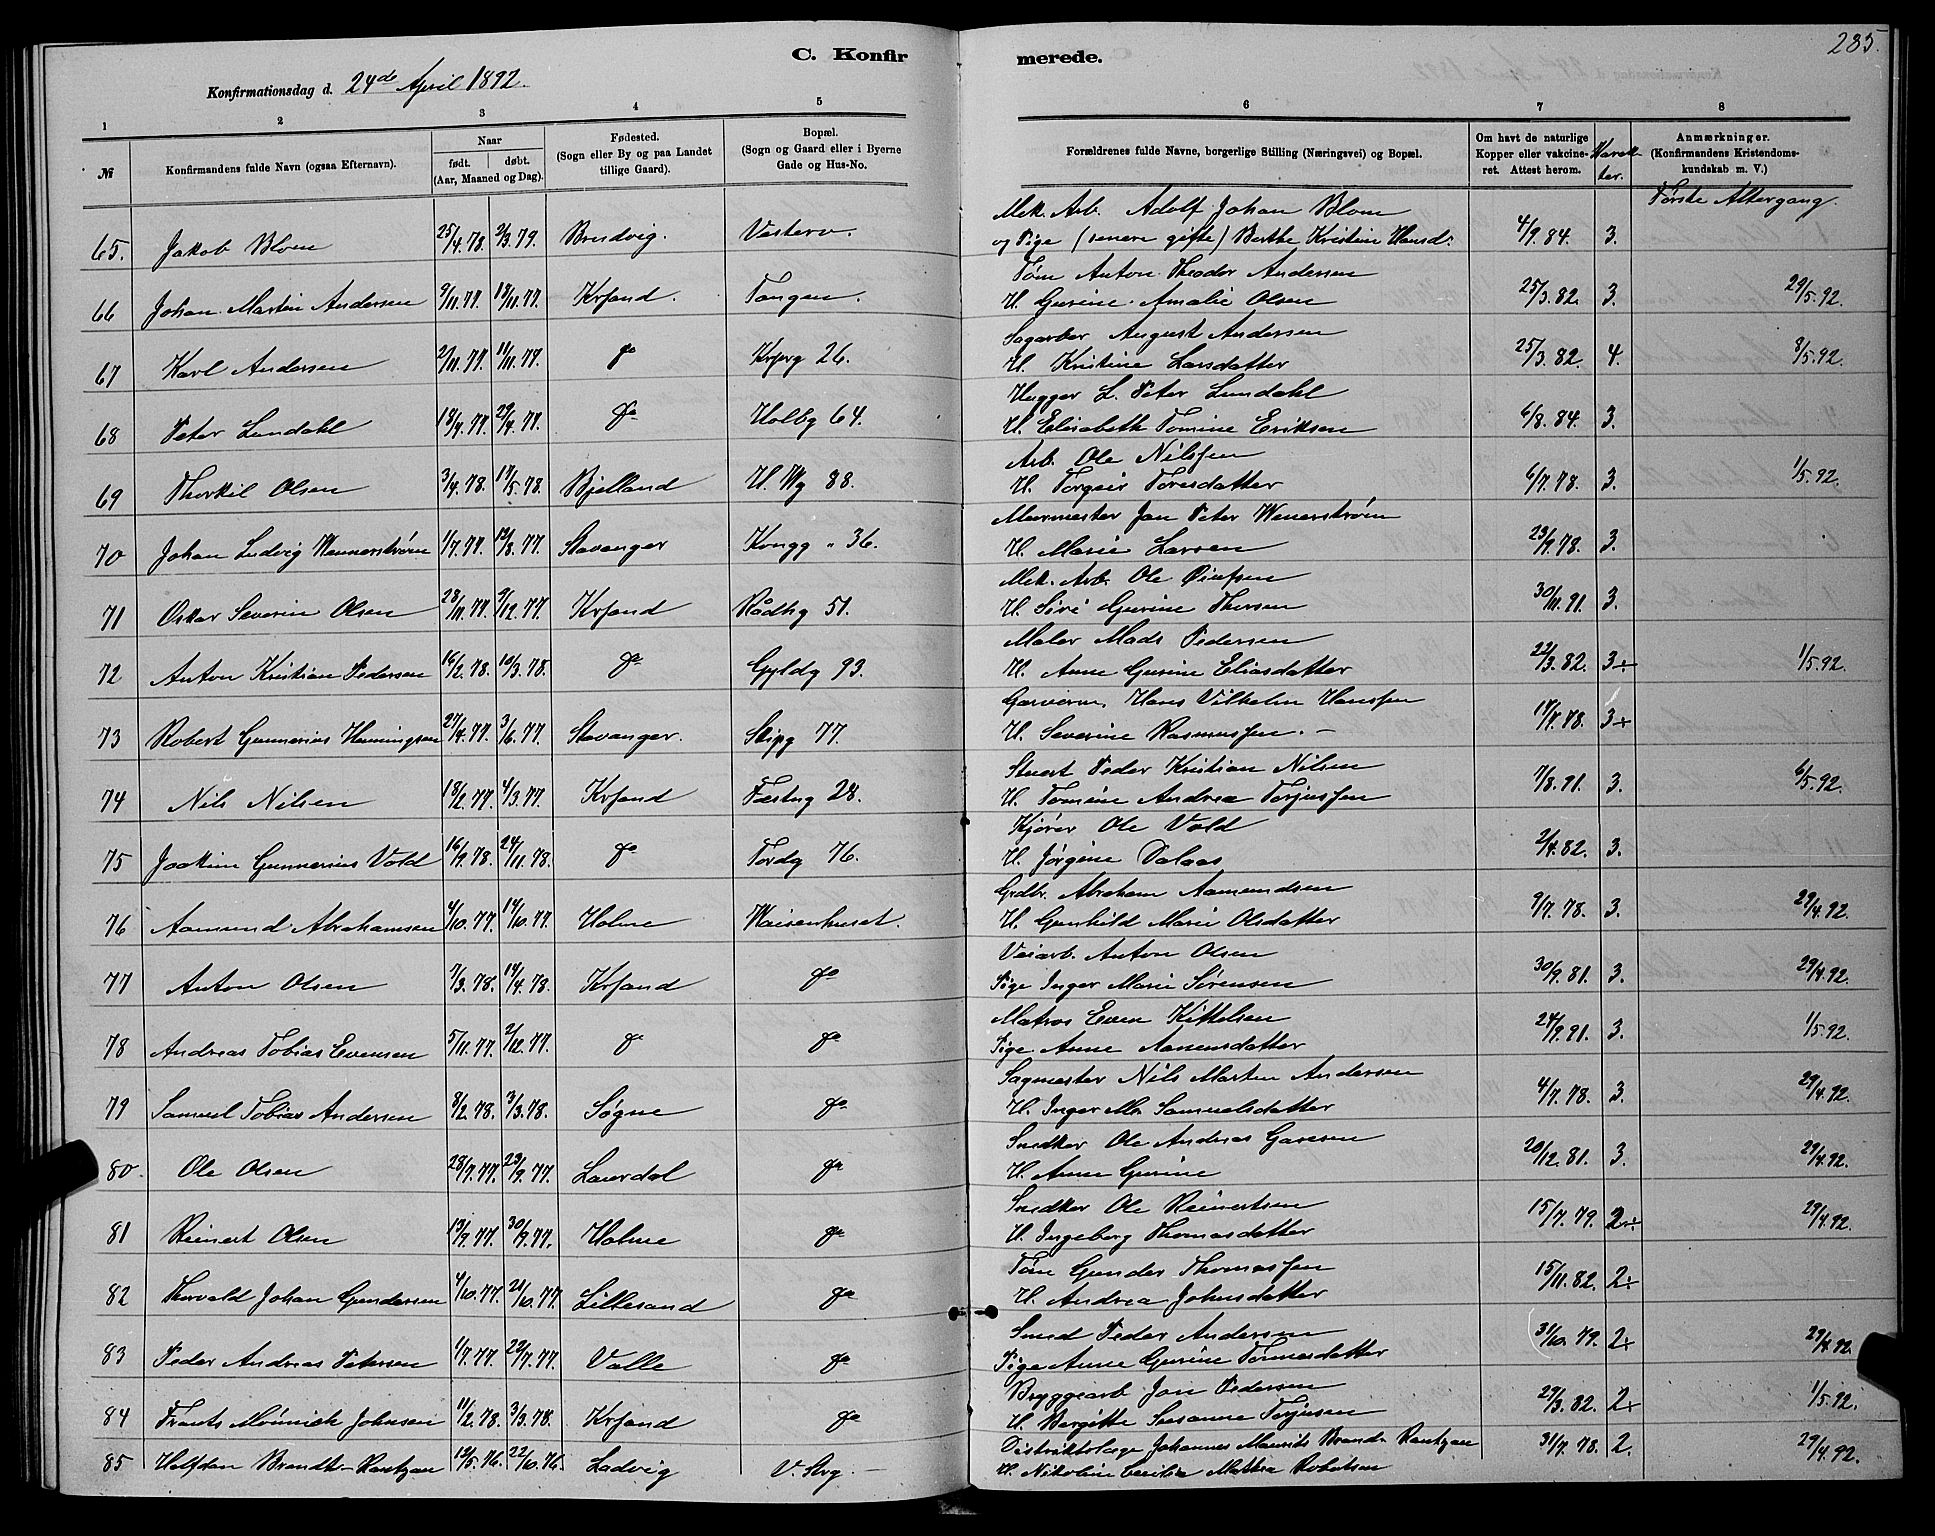 C. Konfirmerede.
285.
Konfirmationsdag d. 24de April 1892.
1 2 3 4 5 6 7 8
№ Konfirmandens fulde Navn (ogsaa Efternavn). Naar født. døbt. (Aar, Maaned og Dag). Fødested. (Sogn eller By og paa Landet tillige Gaard). Bopæl. (Sogn og Gaard eller i Byerne Gade og Hus-No. Forældrenes fulde Navne, borgerlige Stilling (Næringsvei) og Bopæl. Om havt de naturlige Kopper eller vakcineret. Attest herom. Karakter. Anmærkninger. (Konfirmandens Kristendomskundskab m. V.)
Første Altergang.
Mek. Arb. Adolf Johan Blom
65. Jakob Blom 25/4.78. 2/3.79. Bredvig. Vestero. og Pige (senere gifte) Berthe Kristine Hansd. 4/9.84. 3.
Tøm Anton Theodor Andersen
66 Johan Martin Andersen 9/11.77. 18/11.77. Krsand. Tangen. H. Gurine Amalie Olsen 25/3.82. 3. 29/5.92.
Sagarber August Andersen
67 Karl Andersen 2/11.77. 11/11.77. do 26. H. Kristine Larsdatter 25/3.82. 4. 8/5.92.
Hugger L. Peter Lundahl
68 Peter Lundahl 18/4.77. 29/4.77. do Holbg 64. H. Elisabeth Tomine Eriksen 6/8.84. 3.
Arb. Ole Nilssen
69 Thorkil Olsen 3/4.78. 17/5.78. Bjelland H. Wg 88. H. Torgeir Toresdatter 6/7.78. 3. 1/5.92.
Murmester Jan Peter Wenerstrøm
70 Johan Ludvig Wennerstrøm 1/7.77. 12/8.77. Stavanger Kongg " 36. H. Marie Larsen 23/9.78. 3.
Mek. Arb. Ole Olufsen
71 Oskar Severin Olsen 28/11.77. 9/12.77. Krsand Rådhg 51. H. Siri Gurine Thersen 30/11.91. 3.
Maler Mads Pedersen
72 Anton Kristian Pedersen 16/2.78. 10/3.78. do Gyldg 93. H. Anne Gurine Eliasdatter 22/3.82. 3÷ 1/5.92.
Garversv. Hans Vilhelm Hanssen
73 Robert Gunnerius Henningsen 27/4.77. 3/6.77. Stavanger. Skipg 77. H. Severine Rasmussen. – 17/7.78. 3÷
Stuert Peder Kristian Nilsen
74 Nils Nilsen 18/2.77. 4/3.77. Krsand Festng 28. H. Tomine Andrea Torjussen 7/8.91. 3. 6/5.92.
Kjører Ole Vold
75 Joakim Gunnerius Vold 16/9.78. 24/11.78. do Tordg 76. H. Jørgine Dalaas 2/4.82. 3.
Grdbr. Abraham Aamundsen
76 Aamund Abrahamsen 4/10.77. 14/10.77. Holme Waisenhuset. H. Gunhild Marie Olsdatter 9/7.78. 3. 29/4.92.
Veiarb. Anton Olsen
77 Anton Olsen 7/3.78. 14/4.78. Krsand do Pige Inger Marie Sørensen 30/9.81. 3. 29/4.92.
Matros Even Kittelsen
78 Andreas Tobias Evensen 5/11.77. 2/12.77. do do Pige Anne Aanensdatter 24/9.91. 3. 1/5.92.
Sagmester Nils Martin Andersen
79 Samuel Tobias Andersen 8/2.78. 3/3.78. Søgne do H. Inger M. Samuelsdatter 4/7.78. 3. 29/4.92.
Snedker Ole Andreas Garesen
80. Ole Olsen 28/7.77. 23/9.77. Laurdal do H. Anne Gurine 20/12.81. 3. 29/4.92.
Snedker Ole Reinertsen
81 Reinert Olsen 13/9.77. 30/9.77. Holme do H. Ingeborg Thomasdatter 15/7.79. 2÷ 29/4.92.
Tøm Gunder Thomassen
82 Thorvald Johan Gundersen 4/10.77. 21/10.77. Lillesand do H. Andrea Johnsdatter 15/11.82. 2÷
Smed Peder Andersen
83 Peder Andreas Petersen 1/7.77. 22/7.77. Valle do Pige Anne Gurine Tønnesdatter 31/10.79. 2÷ 29/4.92.
Bryggearb Jon Pedersen
84 Frants Mönnich Johnsen 11/2.78. 3/3.78. Krsand do H. Bergitte Susanne Torjusen 29/3.82. 2÷ 1/5.92.
Distriktslæge Johannes Maurits Brandt Rantzau
85 Halfdan Brandt-Rantzau 12/5.76. 22/10.76. Ladvig V. Strg. H. Nikoline Cecilia Mathea Robertsen 31/7.78. 2. 29/4.92.